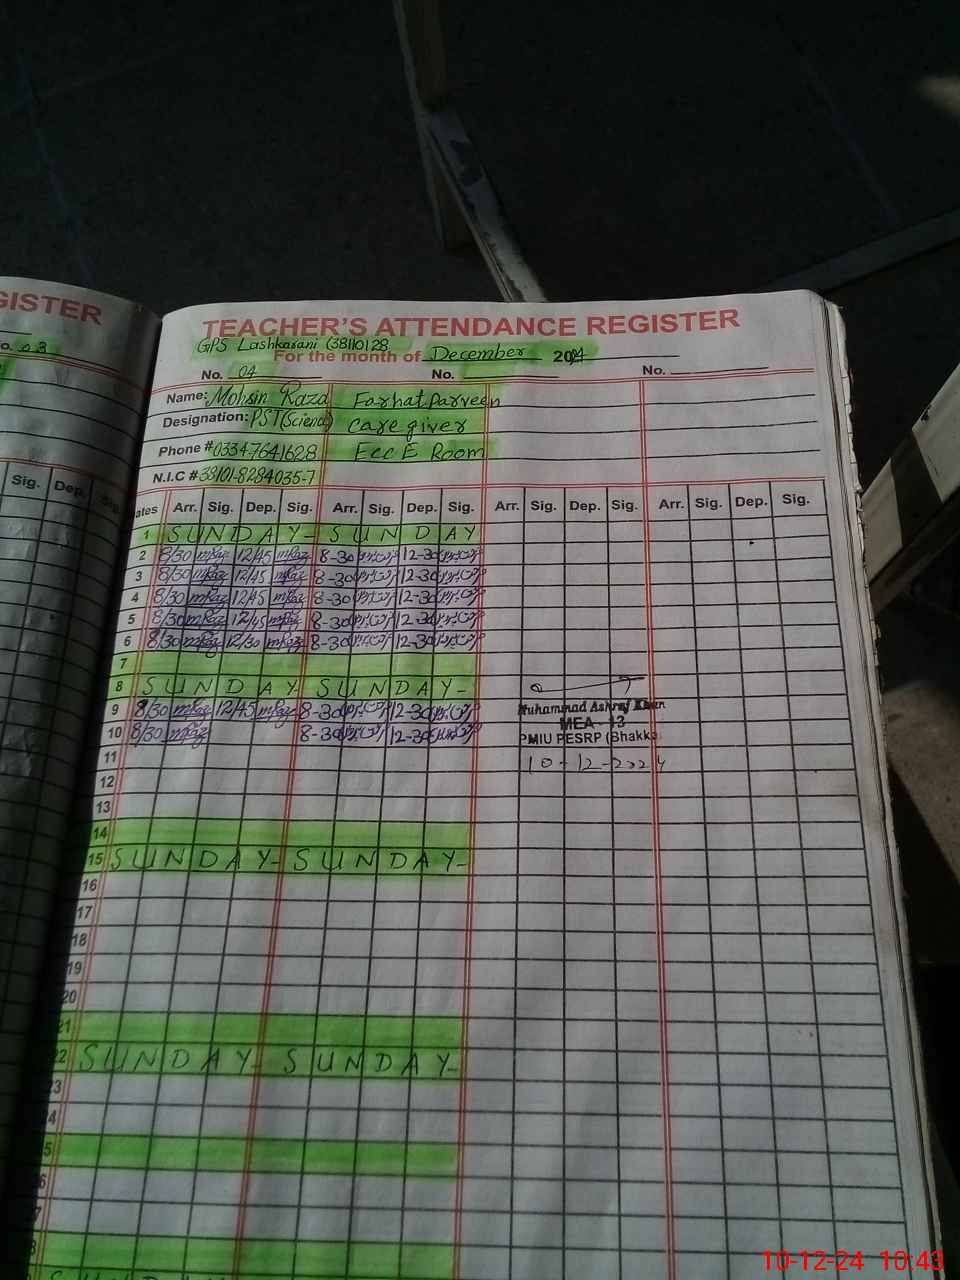 GISTER
No. 03
TEACHER'S ATTENDANCE REGISTER
GPS Lashkarani (38110128
For the month of December 2024
No. 04 No. No.
Name: Mohsin Raza Farhat Parveen
Designation: PST (Science) Care giver
Phone # 0334-7641628 EccE Room
N.I.C # 38101-8284035-7
Sig. Dep. Sig.
ates Arr. Sig. Dep. Sig. Arr. Sig. Dep. Sig. Arr. Sig. Dep. Sig. Arr. Sig. Dep. Sig.
1 SUNDAY- SUNDAY
2 8/30 mRaz 12/45 mRaz 8-30 12-30
3 8/30 mRaz 12/45 mRaz 8-30 12-30
4 8/30 mRaz 12/45 mRaz 8-30 12-30
5 8/30 mRaz 12/45 mRaz 8-30 12-30
6 8/30 mRaz 12/30 mRaz 8-30 12-30
7
8 SUNDAY SUNDAY-
9 8/30 mRaz 12/45 mRaz 8-30 12-30
10 8/30 mRaz 8-30 12-30
Muhammad Ashraf Khan
MEA - 13
PMIU PESRP (Bhakka
10-12-2024
11
12
13
14
15 SUNDAY- SUNDAY-
16
17
18
19
20
21
22 SUNDAY- SUNDAY-
23
4
5
6
7
8
SUNDAY SUNDAY
10-12-24 10:43